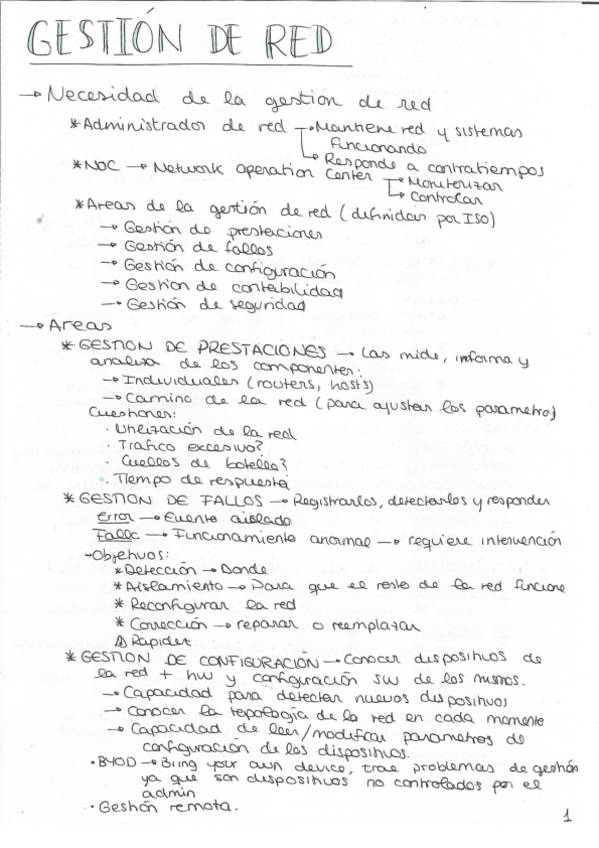 GESTIÓN DE RED
→ Necesidad de la gestión de red
* Administrador de red → Mantiene red y sistemas
funcionando
→ Responde a contratiempos
* NOC → Network operation Center → Monitorizar
→ Controlar
* Areas de la gestión de red (definidas por ISO)
→ Gestión de prestaciones
→ Gestión de fallos
→ Gestión de configuración
→ Gestion de contabilidad
→ Gestión de seguridad
→ Areas
* GESTION DE PRESTACIONES → Las mide, informa y
analiza de los componentes:
→ Individuales (routers, hosts)
→ Camino de la red (para ajustar los parametro)
Cuestiones:
· Utilización de la red
· Trafico excesivo?
· Cuellos de botella?
· Tiempo de respuesta
* GESTION DE FALLOS → Registrarlos, detectarlos y responder
Error → Evento aislado
Fallo → Funcionamiento anormal → requiere intervención
- Objetivos:
* Detección → Donde
* Aislamiento → Para que el resto de la red funcione
* Reconfigurar la red
* Corrección → reparar o reemplazar
⚠ Rapidez
* GESTION DE CONFIGURACIÓN → Conocer dispositivos de
la red + hw y configuración sw de los mismos.
→ Capacidad para detectar nuevos dispositivos
→ Conocer la topología de la red en cada momento
→ Capacidad de leer/modificar parametros de
configuración de los dispositivos.
· BYOD → Bring your own device, trae problemas de gestión
ya que son dispositivos no controlados por el
admin
· Gestión remota.
1